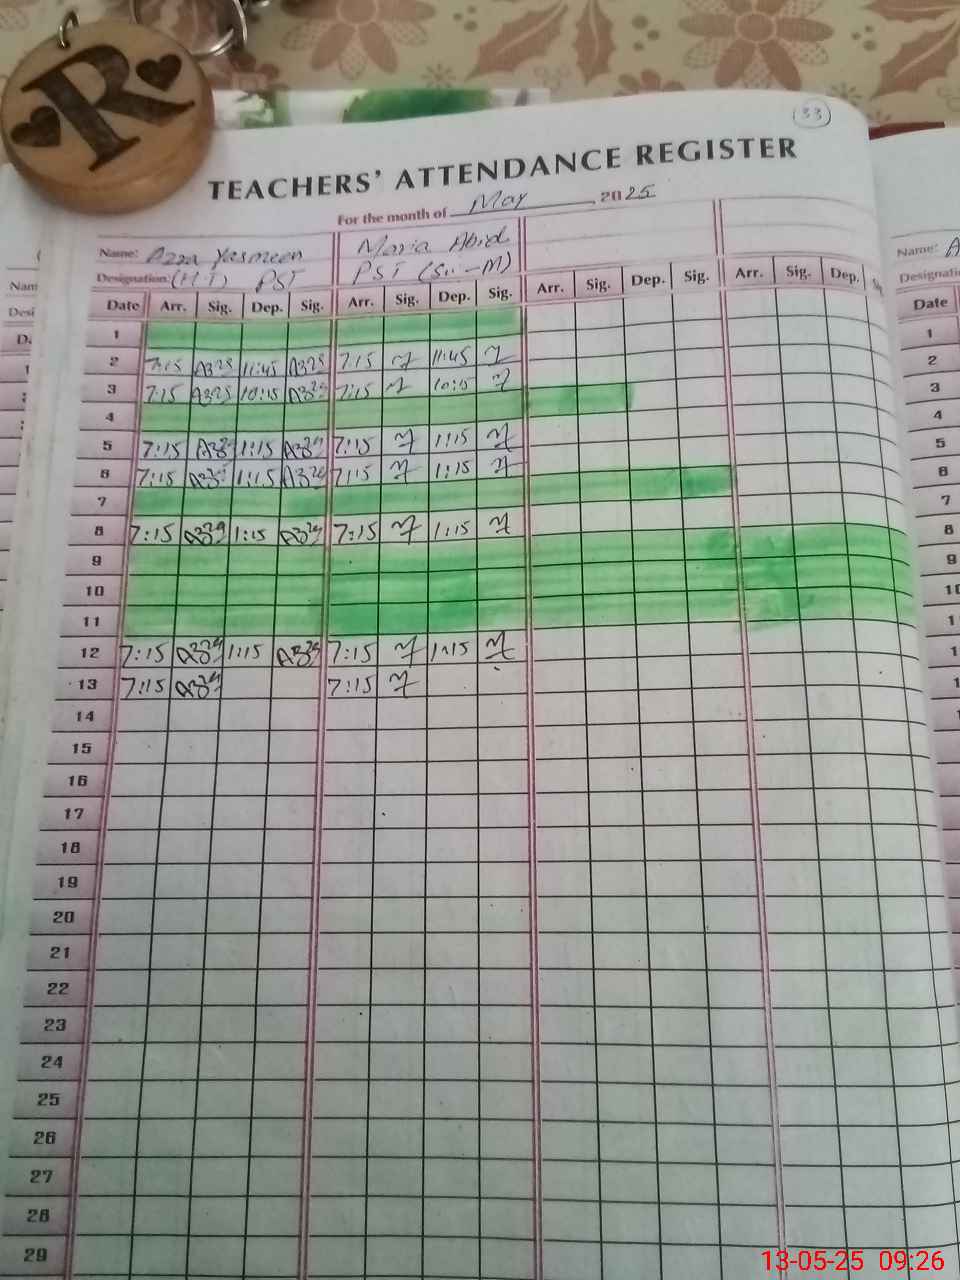 R
33
TEACHERS' ATTENDANCE REGISTER
For the month of May 2025
Name: Azra Yasmeen Maria Abid Name: A
Designation: (H.T) PST PST (S...-M)
Date Arr. Sig. Dep. Sig. Arr. Sig. Dep. Sig. Arr. Sig. Dep. Sig. Arr. Sig. Dep. Date
1 1
2 7:15 11:45 7:15 11:45 2
3 7:15 10:15 7:15 10:15 3
4 4
5 7:15 1:15 7:15 1:15 5
6 7:15 1:15 7:15 1:15 6
7 7
8 7:15 1:15 7:15 1:15 8
9 9
10 10
11
12 7:15 1:15 7:15 1:15
13 7:15 7:15
14
15
16
17
18
19
20
21
22
23
24
25
26
27
28
29
13-05-25 09:26